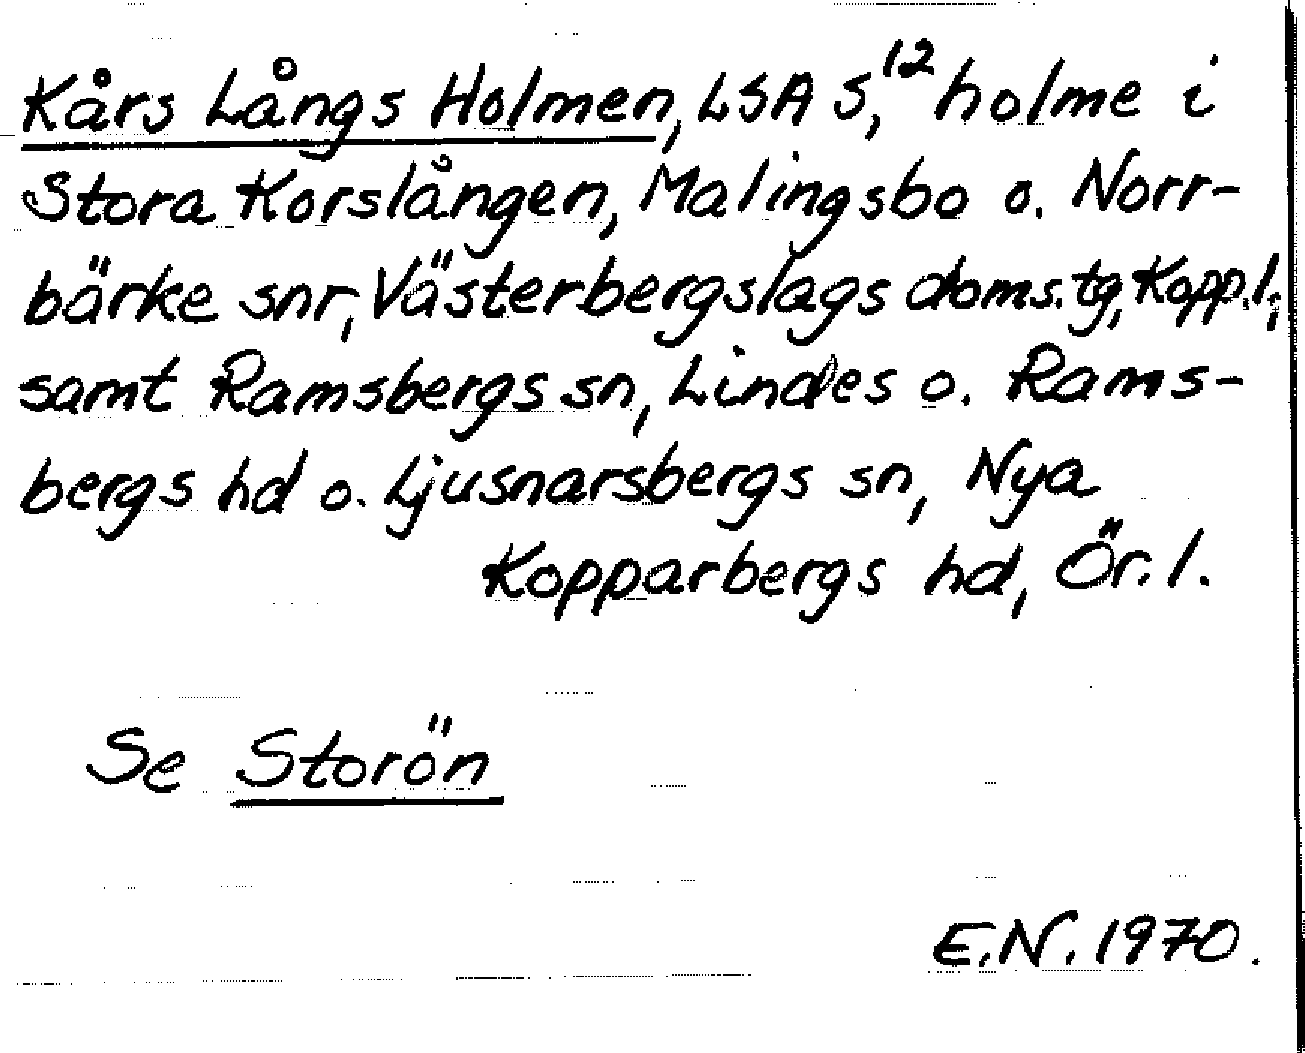 Kårs Långs Holmen, LSA S,¹² holme i
Stora Korslången, Malingsbo o. Norr-
bärke snr, Västerbergslags doms.tg, Kopp.l.,
samt Ramsbergs sn, Lindes o. Rams-
bergs hd o. Ljusnarsbergs sn, Nya
Kopparbergs hd, Ör.l.
Se Storön
E.N. 1970.